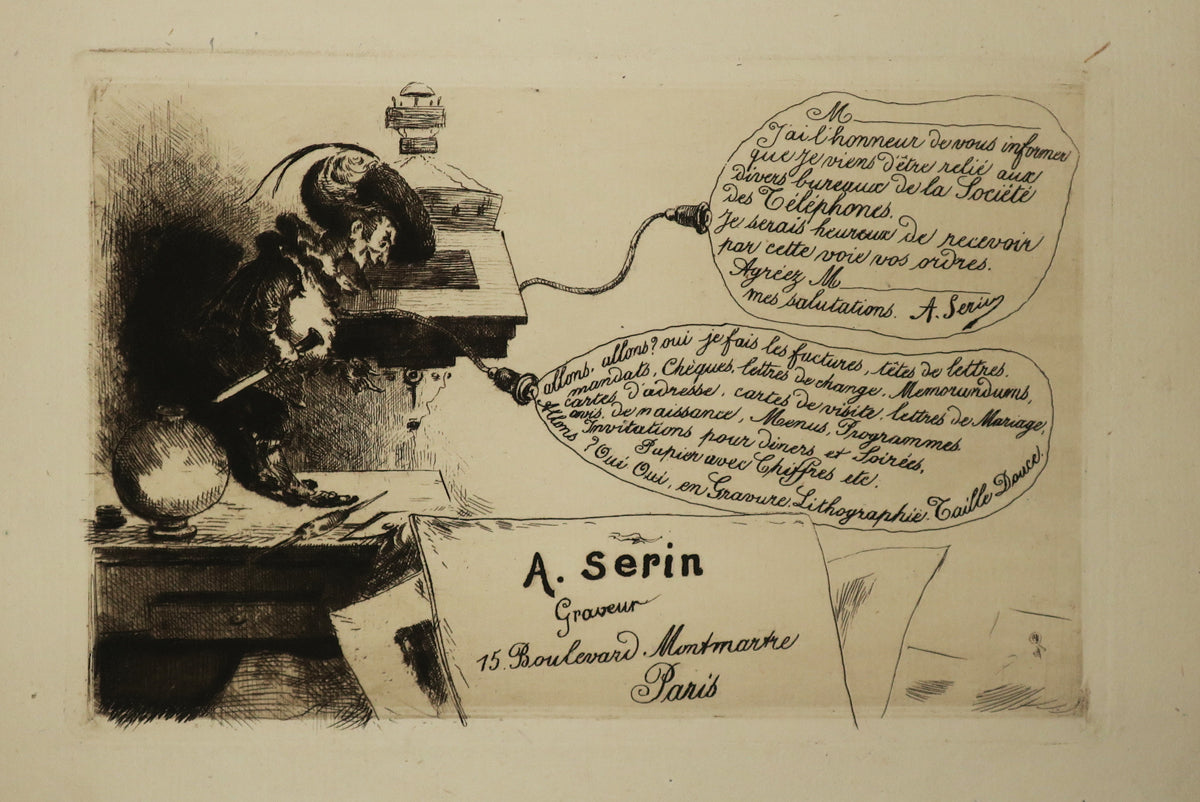 M
J'ai l'honneur de vous informer
que je viens d'être relié aux
divers bureaux de la Société
des Téléphones.
Je serais heureux de recevoir
par cette voie vos ordres.
Agréez M
mes salutations. A. Serin
allons, allons? oui je fais les factures, têtes de lettres,
mandats, Chèques, lettres de change, Memorandums,
cartes d'adresse, cartes de visite, lettres de Mariage,
avis de naissance, Menus, Programmes
Invitations pour diners et Soirées,
Papier avec Chiffres etc.
Allons? Oui Oui, en Gravure Lithographie. Taille Douce.
A. Serin
Graveur
15. Boulevard. Montmartre
Paris